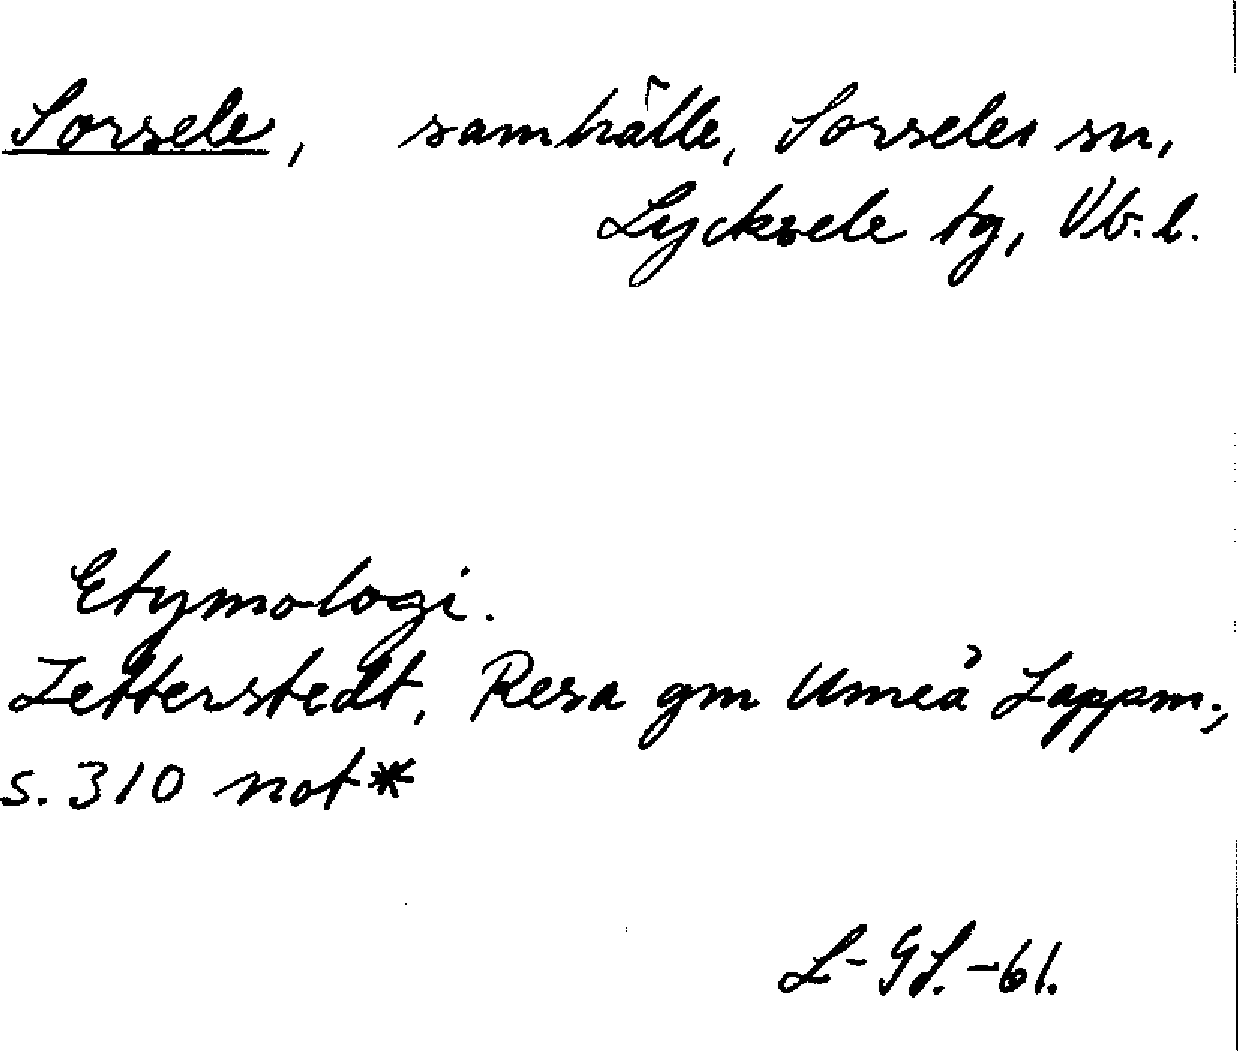 Sorsele, samhälle, Sorsele sn,
Lycksele tg, Vb.l.
Etymologi.
Zetterstedt, Resa gm Umeå Lappm.,
s. 310 not*
L-GL.-61.